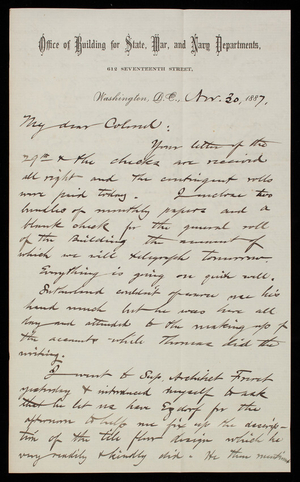 Office of Building for State, War, and Navy Departments,
612 SEVENTEENTH STREET,
Washington, D.C., Nov. 30, 1887.
My dear Colonel:
Your letter of the
29th & the checks are received
all right and the contingent rolls
were paid today. I enclose two
bundles of monthly papers and a
blank check for the general roll
of the Building the amount of
which we will telegraph tomorrow.
Everything is going on quite well.
Sutherland couldn't of course use his
hand much but he was here all
day and attended to the making up of
the accounts while Thomas did the
writing.
I went to Sup. Architect Freret
yesterday & introduced myself to ask
that he let me have for the
afternoon to help me fix up the descrip-
tion of the tile floor design which he
very readily & kindly did. He then